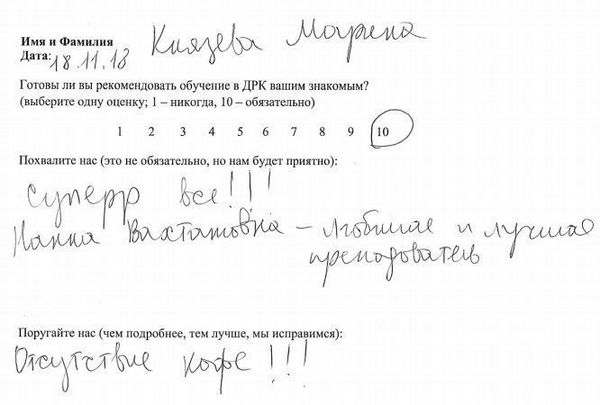 Имя и Фамилия Князева Марина
Дата: 18.11.18
Готовы ли вы рекомендовать обучение в ДРК вашим знакомым?
(выберите одну оценку; 1 – никогда, 10 – обязательно)
1 2 3 4 5 6 7 8 9 10
Похвалите нас (это не обязательно, но нам будет приятно):
Суперр все!!!
Нанка Вахтатовна – любимая и лучшая
преподователь
Поругайте нас (чем подробнее, тем лучше, мы исправимся):
Отсутствие кофе!!!